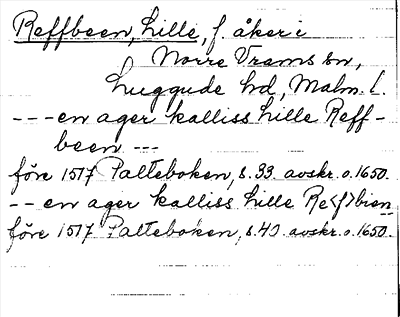 Reffbeen, Lille, f. åker i
Norre Vrams sn,
Luggude hd, Malm. l.
--- en ager kalliss Lille Reff-
been ---
före 1517 Palteboken, s. 33. avskr. o. 1650.
-- en ager kalliss Lille Re<f>bien
före 1517 Palteboken, s. 40. avskr. o. 1650.